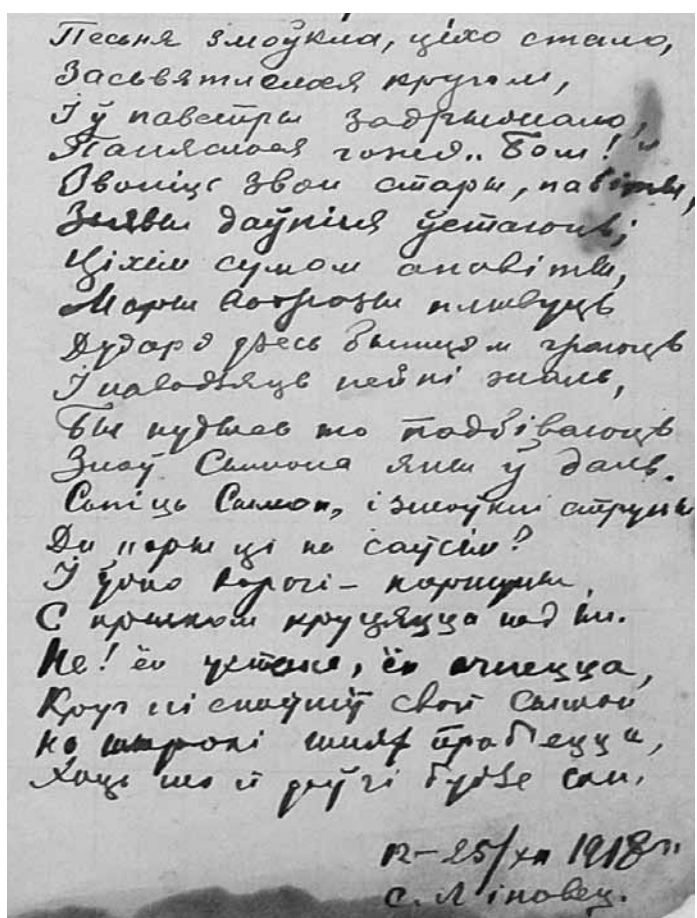 Песьня змоўкла, ціхо стало,
Засьвятлелося кругом,
І ў паветры задрыжало,
Паняслося гэнае „Бом!"
Звоніць звон стары, павіты,
Зьявы даўнія ўстаюць,
Ціхім сумам спавіты,
Мары вобразы плывуць
Дудара дзесь быццам граюць
І наводзяць нейкі жаль,
Бы кудысь то падбіваюць
Сымона яны ў даль.
Сьпіць Сымон, і змоўклі струны
Ды ці на саўсім?
І ўжо варогі – каршуны
С крыком круцяцца над ім.
Не! ён устане, ён ачнецца,
Круг ні споўніў свой Сымон
На шырокі шлях праб'ецца,
Хоць то й доўгі будзе сон.
12–25/XII 1918 г.
С. Ліновец.